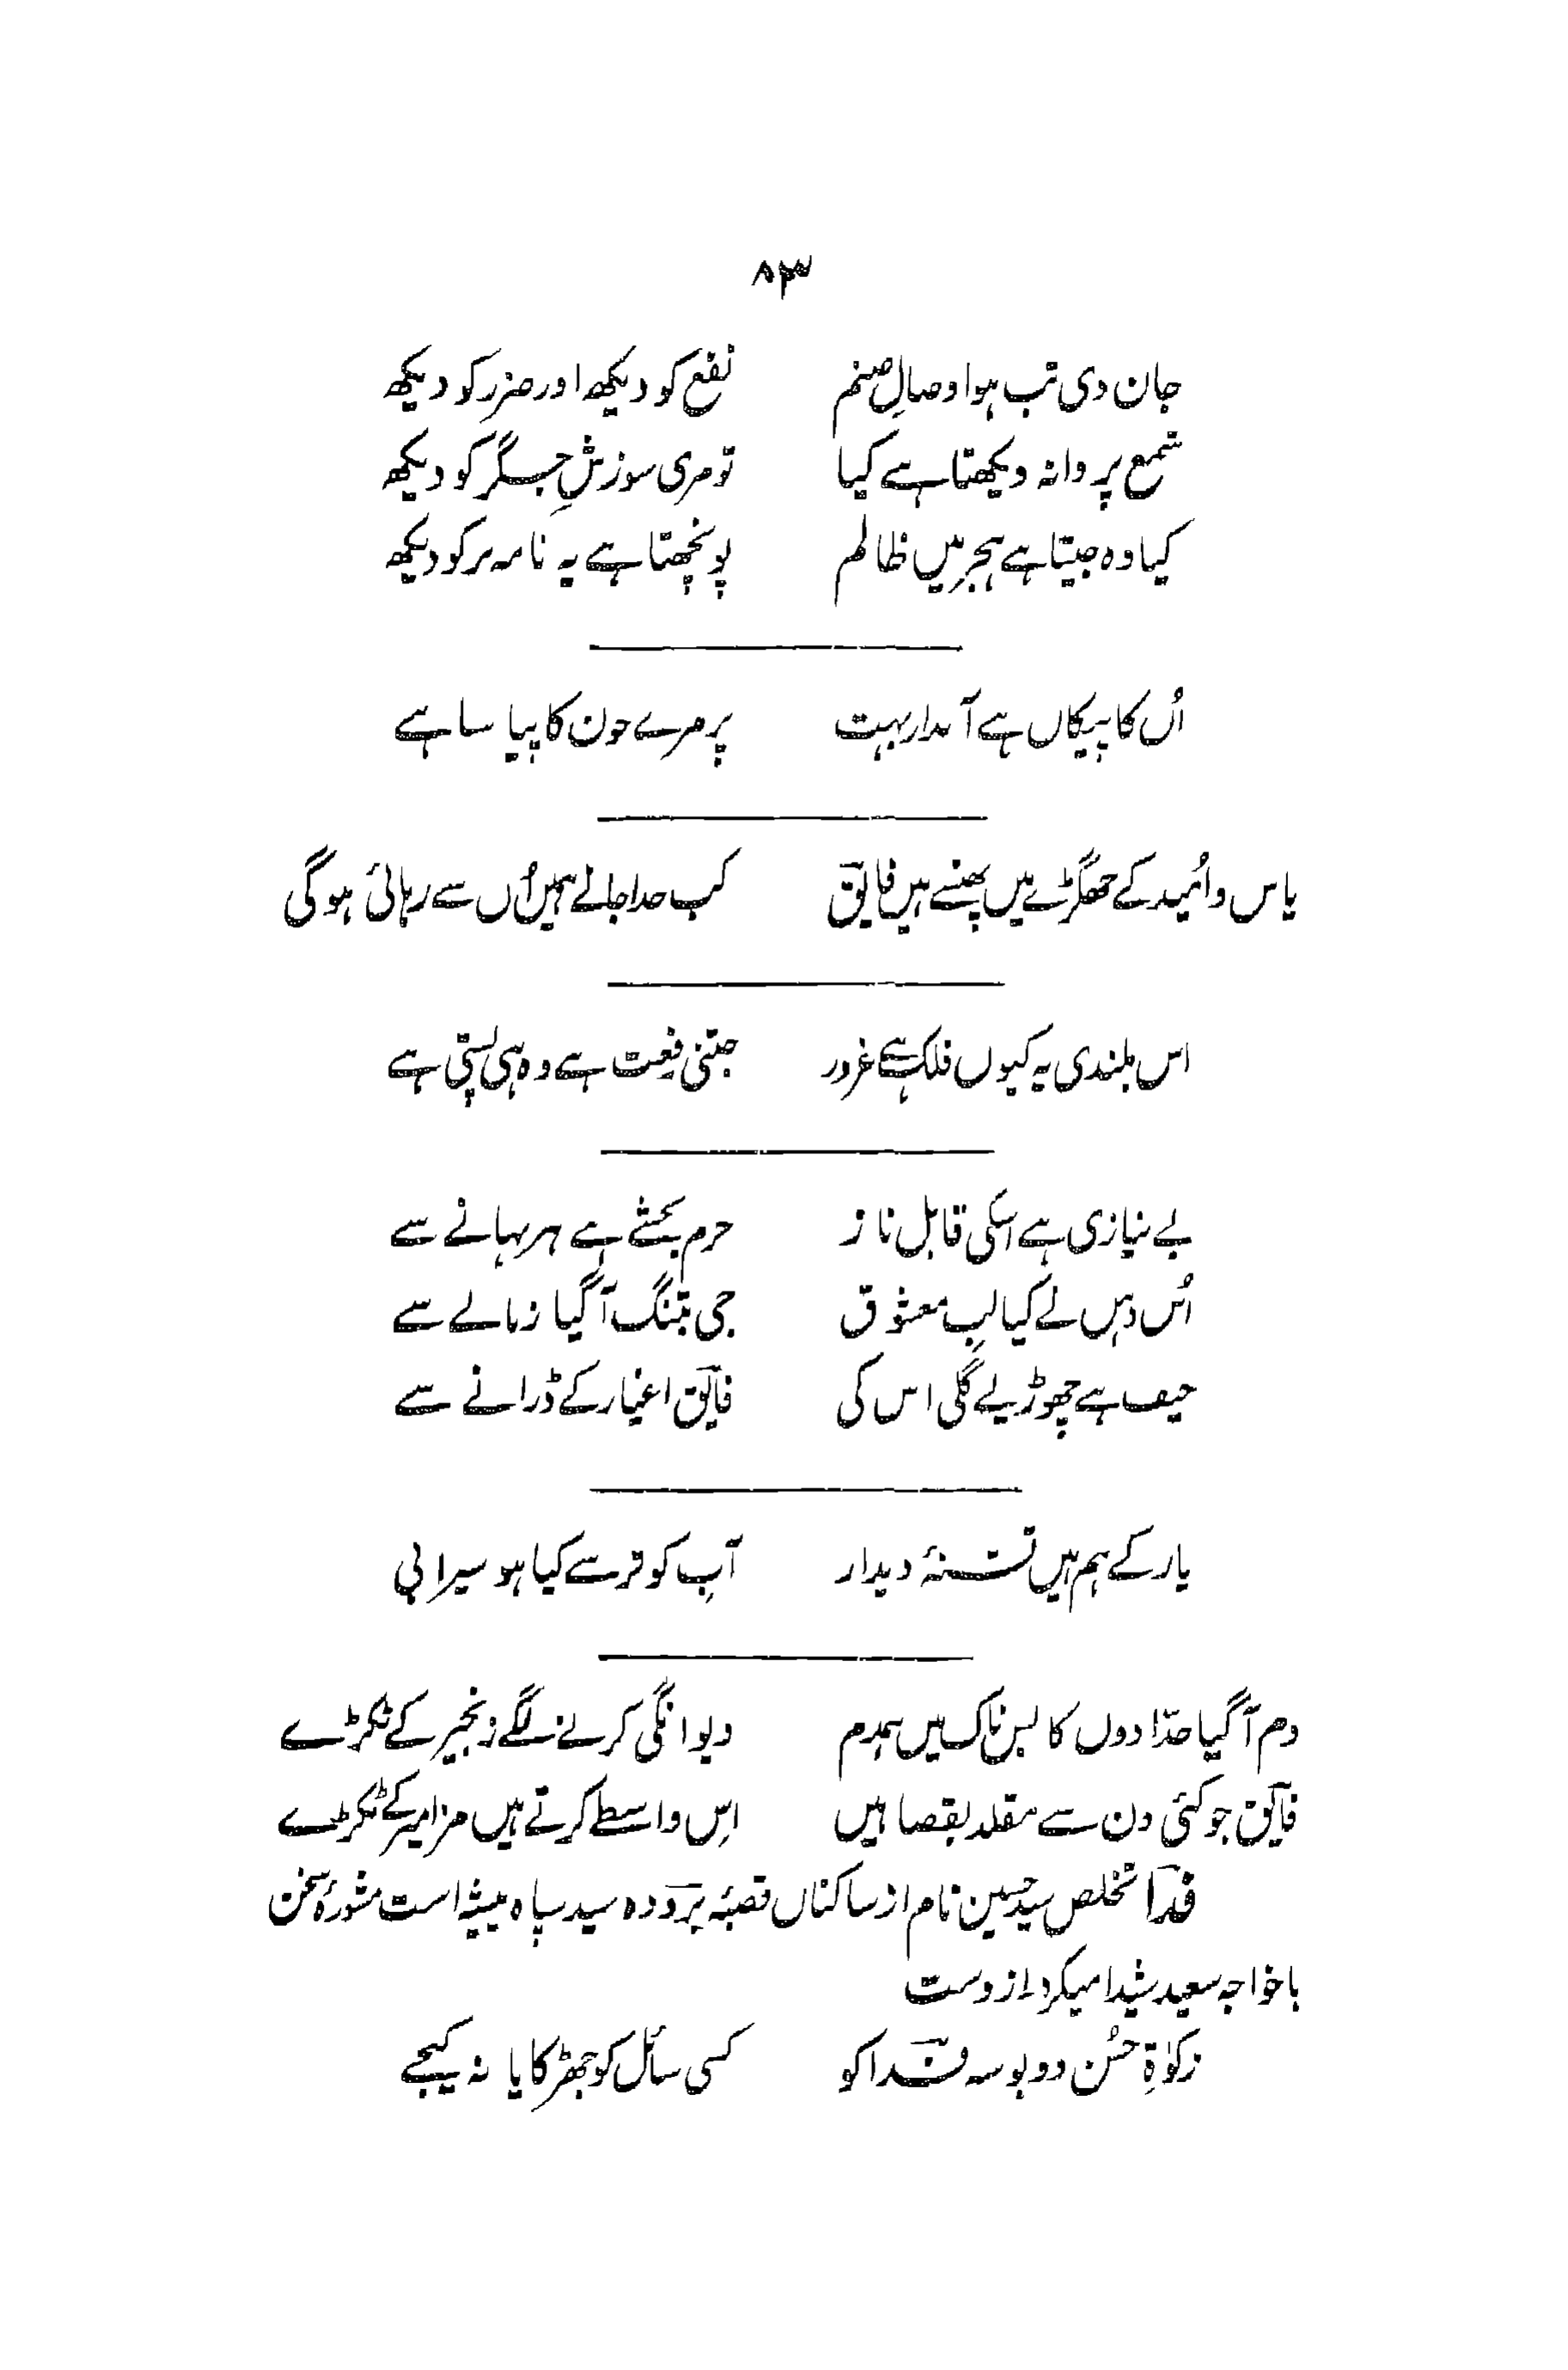 ۸۳
جان دی تب ہوا وصالِ صنم نفع کو دیکھ اور ضرر کو دیکھ
شمع پروانہ دیکھتا ہے کیا تو مری سوزشِ جگر کو دیکھ
کیا وہ جیتا ہے ہجر میں ظالم پونچھتا ہے یہ نامہ بر کو دیکھ
اُس کا پیکاں ہے آبدار بہت پر مرے خون کا پیاسا ہے
یاس و اُمید کے جھگڑے میں پھنسے ہیں فایق کب خدا جانے ہمیں اُس سے رہائی ہوگی
اس بلندی پہ کیوں فلک ہے غرور جتنی رفعت ہے وہ ہی پستی ہے
بے نیازی ہے اسکی قابل ناز جرم بخشے ہے ہر بہانے سے
اُس دہن نے کیا لبِ معشوق جی بتنگ آگیا زمانے سے
حیف ہے چھوڑیے گلی اس کی فایق اغیار کے ڈرانے سے
یار کے ہم ہیں تشنۂ دیدار آبِ کوثر سے کیا ہو سیرابی
دم آگیا حدّادوں کا بس ناک میں ہمدم دیوانگی کرنے لگے زنجیر کے ٹکڑے
فایق جو کئی دن سے مقلد بقضا ہیں اِس واسطے کرتے ہیں مزامیر کے ٹکڑے
فدا تخلص سید حسین نام از ساکنان قصبۂ برودہ سید سپاہ پیشہ است مشورۂ سخن
باخواجہ سعید شیدا میکرد از وست
زکوٰۃِ حُسن دو بوسہ فدا کو کسی سائل کو جھڑکایا نہ کیجے